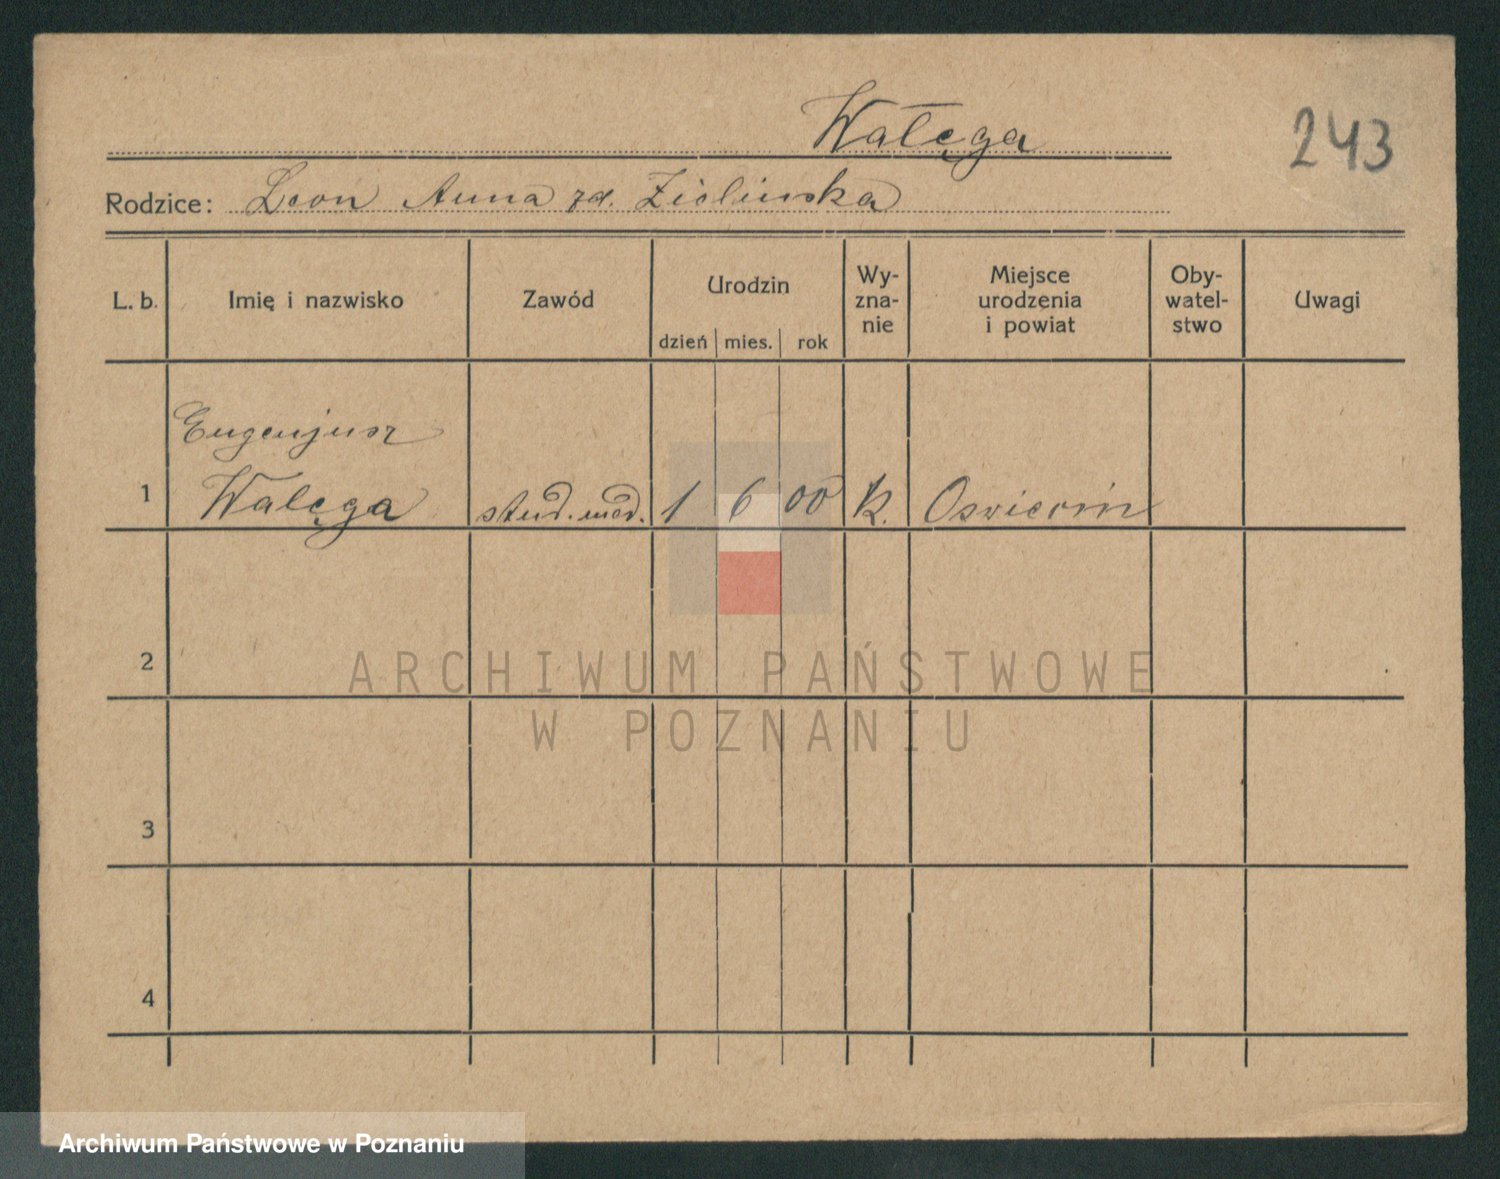 Wałęga
243
Rodzice: Leon Anna zd. Zielinska
L. b.
Imię i nazwisko
Zawód
Urodzin
dzień mies. rok
Wy-
zna-
nie
Miejsce
urodzenia
i powiat
Oby-
watel-
stwo
Uwagi
Eugenjusz
1 Walęga stud. med. 1 6 00 k. Oswiecim
2
ARCHIWUM PAŃSTWOWE
W POZNANIU
3
4
Archiwum Państwowe w Poznaniu